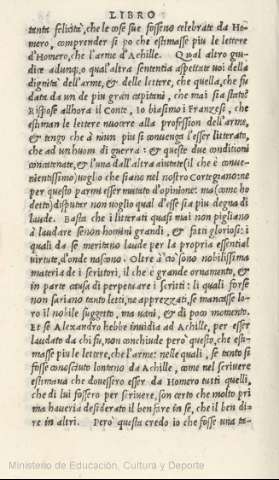 LIBRO
tanta felicità, che le cose sue fossero celebrate da Ho-
mero, comprender si po che estimasse piu le lettere
d'Homero, che l'arme d'Achille. Qual altro giu-
dice adunque, o qual'altra sententia aspettate uoi della
dignità dell'arme, & delle lettere, che quella, che fu
data da un de piu gran capitani, che mai sia stato?
Rispose allhora il Conte, Io biasimo i Franzesi, che
estiman le lettere nuocere alla profession dell'arme,
& tengo che à niun piu si conuenga l'esser litterato,
che ad un huom di guerra: & queste due conditioni
concatenate, & l'una dall'altra aiutate (il che è conue-
nientissimo) uoglio che siano nel nostro Cortegiano: ne
per questo parmi esser mutato d'opinione: ma (come ho
detto) disputar non uoglio qual d'esse sia piu degna di
laude. Basta che i litterati quasi mai non pigliano
à laudare se non homini grandi, & fatti gloriosi: i
quali da se meritano laude per la propria essential
uirtute, d'onde nascono. Oltre à ciò sono nobilissima
materia de i scrittori, il che è grande ornamento, &
in parte causa di perpetuare i scritti: li quali forse
non sariano tanto letti, ne apprezzati, se mancasse lo-
ro il nobile suggetto, ma uani, & di poco momento.
Et se Alexandro hebbe inuidia ad Achille, per esser
laudato da chi fu, non conchiude però questo, che esti-
masse piu le lettere, che l'arme: nelle quali, se tanto si
fosse conosciuto lontano da Achille, come nel scriuere
estimaua che douessero esser da Homero tutti quelli,
che di lui fossero per scriuere, son certo che molto pri
ma haueria desiderato il ben fare in se, che il ben di-
re in altri. Però questa credo io che fosse una ta-
Ministerio de Educación, Cultura y Deporte